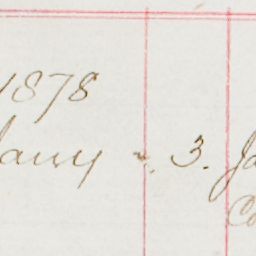 1878
Jany 3. Ja
Co